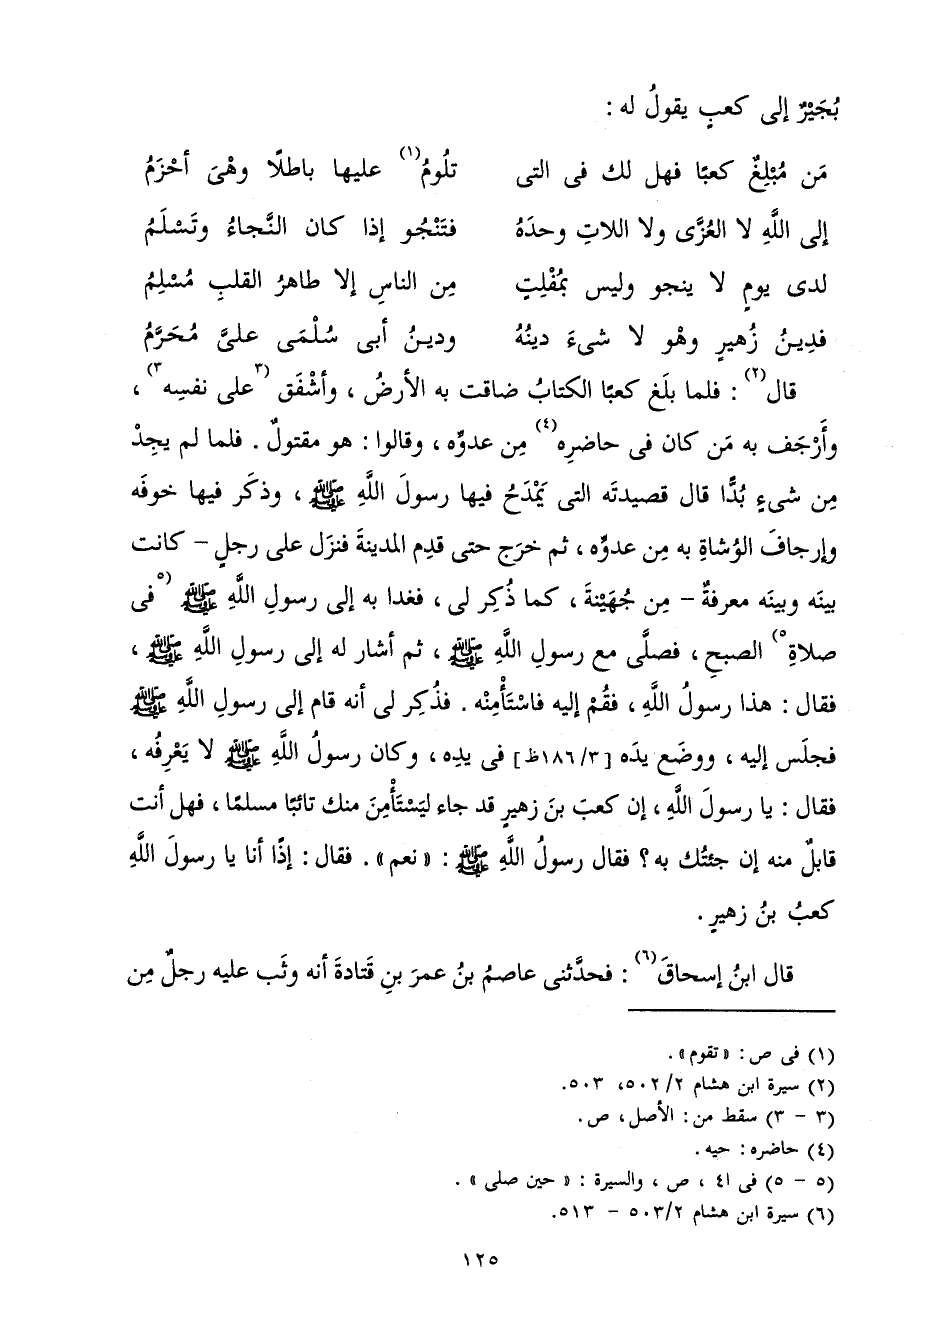 بُجَيْرٌ إلى كعبٍ يقولُ له :
مَن مُبْلِغٌ كعبًا فهل لك فى التى تلُومُ(١) عليها باطلًا وهْىَ أحْزَمُ
إلى اللَّهِ لا العُزَّى ولا اللاتِ وحدَهُ فتَنْجُو إذا كان النَّجاءُ وتَسْلَمُ
لدى يومِ لا ينجو وليس بمُفْلِتٍ مِن الناسِ إلا طاهرُ القلبِ مُسْلِمُ
فدِينُ زُهيرٍ وهْو لا شىءَ دينُهُ ودينُ أبى سُلْمَى علىَّ مُحَرَّمُ
قال(٢) : فلما بلَغ كعبًا الكتابُ ضاقت به الأرضُ ، وأشْفَق (٣على نفسِه٣) ،
وأَرْجَف به مَن كان فى حاضرِه(٤) مِن عدوِّه ، وقالوا : هو مقتولٌ . فلما لم يجِدْ
مِن شىءٍ بُدًّا قال قصيدتَه التى يَمْدَحُ فيها رسولَ اللَّهِ ﷺ ، وذكَر فيها خوفَه
وإرجافَ الوُشاةِ به مِن عدوِّه ، ثم خرَج حتى قدِم المدينةَ فنزَل على رجلٍ – كانت
بينَه وبينَه معرفةٌ – مِن جُهَيْنةَ ، كما ذُكِر لى ، فغدا به إلى رسولِ اللَّهِ ﷺ (٥فى
صلاةِ٥) الصبحِ ، فصلَّى مع رسولِ اللَّهِ ﷺ ، ثم أشار له إلى رسولِ اللَّهِ ﷺ ،
فقال : هذا رسولُ اللَّهِ ، فقُمْ إليه فاسْتَأْمِنْه . فذُكِر لى أنه قام إلى رسولِ اللَّهِ ﷺ
فجلَس إليه ، ووضَع يدَه [٣/ ١٨٦ظ] فى يدِه ، وكان رسولُ اللَّهِ ﷺ لا يَعْرِفُه ،
فقال : يا رسولَ اللَّهِ ، إن كعبَ بنَ زهيرٍ قد جاء ليَسْتَأْمِنَ منك تائبًا مسلمًا ، فهل أنت
قابلٌ منه إن جئتُك به ؟ فقال رسولُ اللَّهِ ﷺ : « نعم » . فقال : إذًا أنا يا رسولَ اللَّهِ
كعبُ بنُ زهيرٍ .
قال ابنُ إسحاقَ(٦) : فحدَّثنى عاصمُ بنُ عمرَ بنِ قَتادةَ أنه وثَب عليه رجلٌ مِن
(١) فى ص : « تقوم » .
(٢) سيرة ابن هشام ٢/ ٥٠٢، ٥٠٣.
(٣ – ٣) سقط من : الأصل ، ص .
(٤) حاضره : حيه .
(٥ – ٥) فى ٤١ ، ص ، والسيرة : « حين صلى » .
(٦) سيرة ابن هشام ٥٠٣/٢ – ٥١٣.
١٢٥